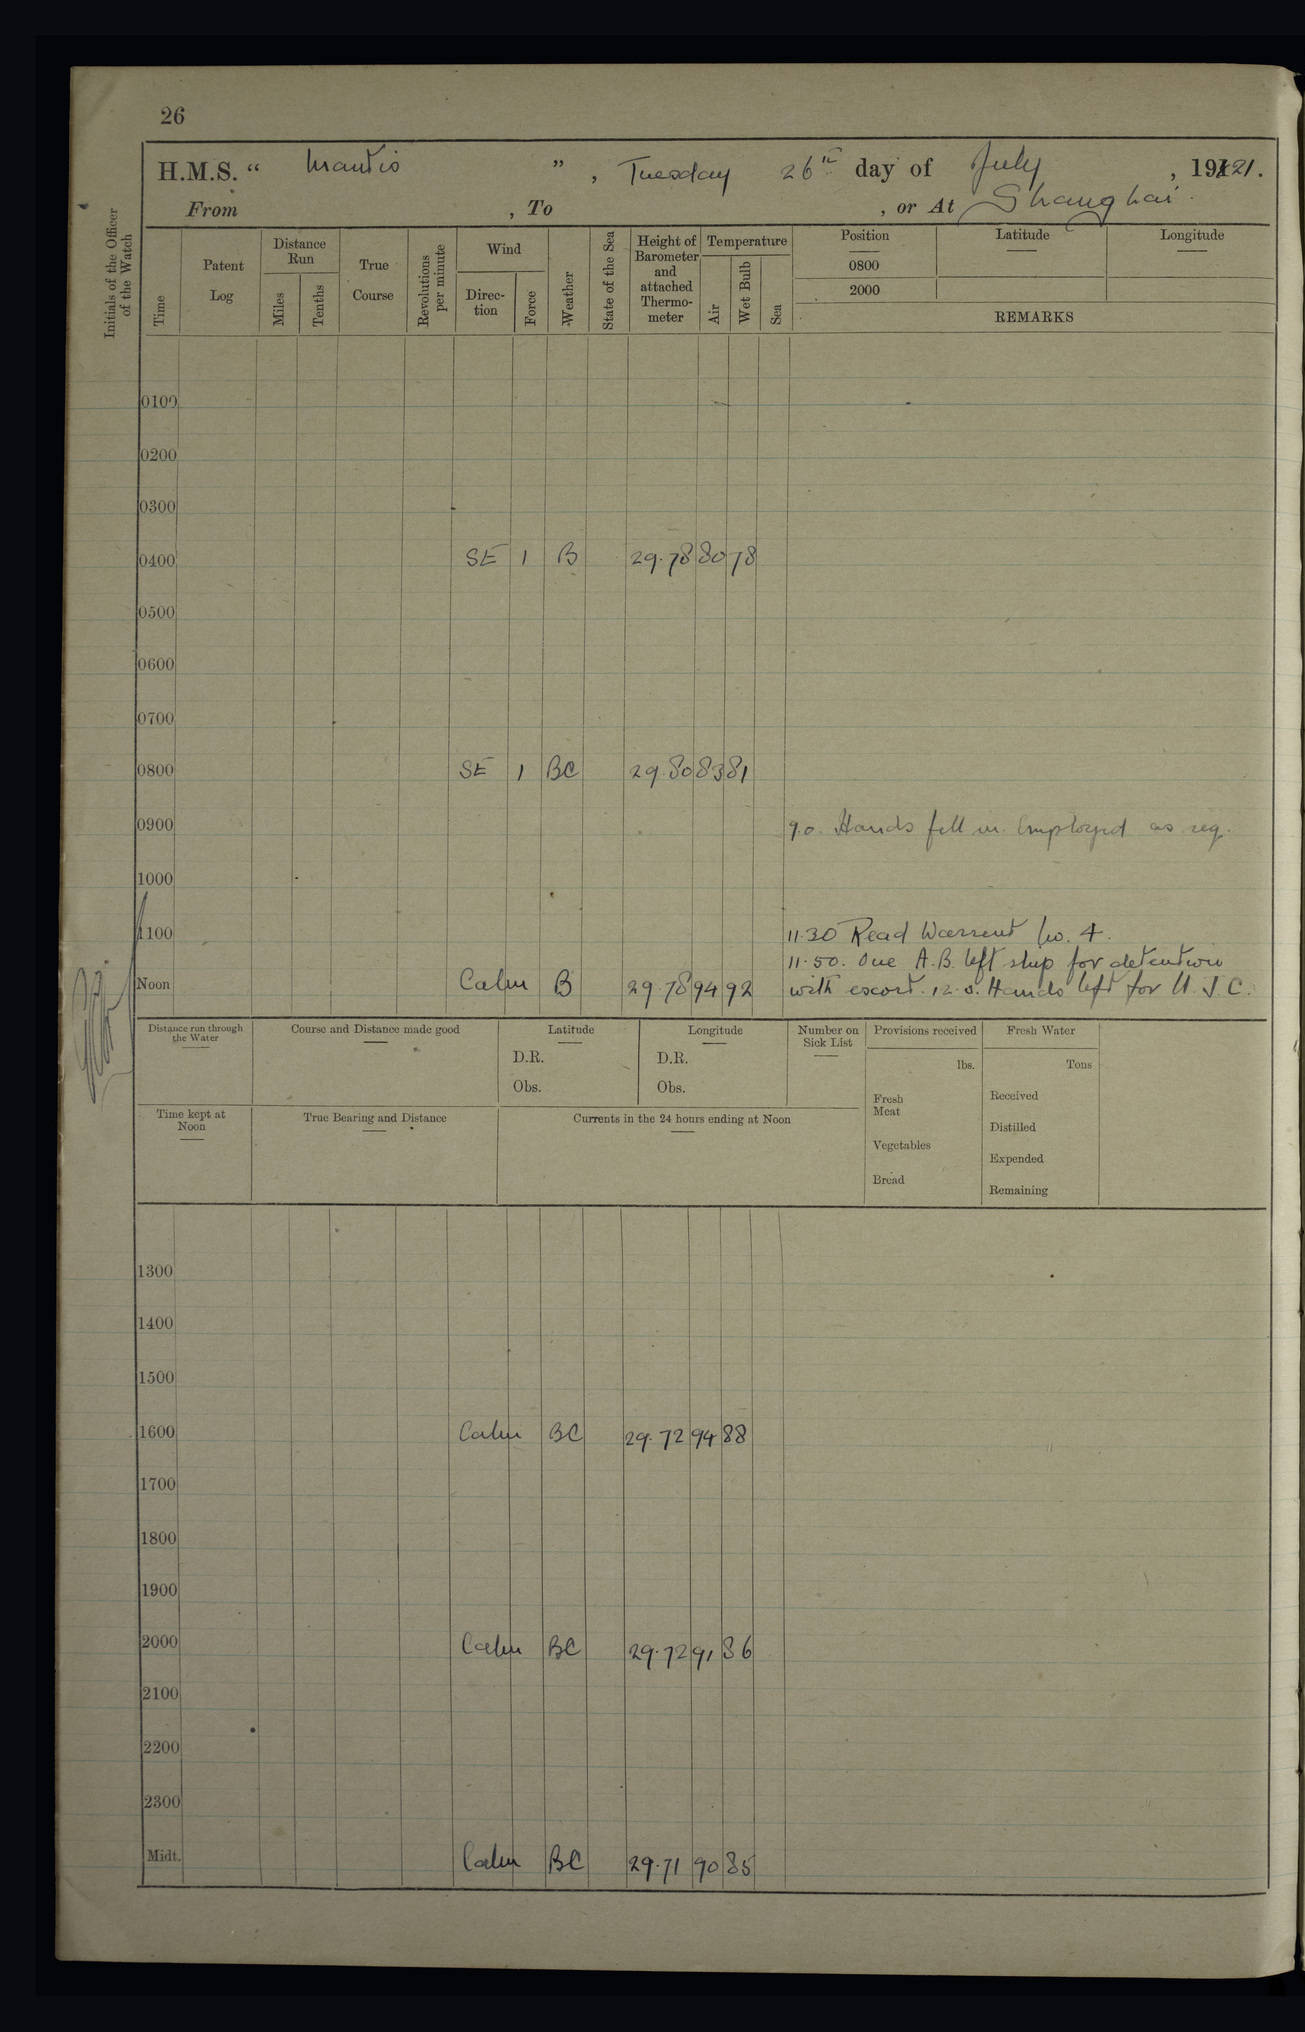 26
H.M.S. “ Mantis ”, Tuesday 26th day of July, 1921.
From , To , or At Shanghai.
Initials of the Officer of the Watch
Time
Patent Log
Distance Run
Miles
Tenths
True Course
Revolutions per minute
Wind
Direc-tion
Force
Weather
State of the Sea
Height of Barometer and attached Thermo-meter
Temperature
Air
Wet Bulb
Sea
Position
Latitude
Longitude
0800
2000
REMARKS
0100
0200
0300
0400 SE 1 B 29.78 80 78
0500
0600
0700
0800 SE 1 BC 29.80 83 81
0900 9.0. Hands fell in. Employed as req.
1000
1100 11.30 Read Warrent No. 4.
11.50. One A.B. left ship for detention
Noon Calm B 29.78 94 92 with escort. 12.0. Hands left for U.S.C.
Distance run through the Water
Course and Distance made good
Latitude
D.R.
Obs.
Longitude
D.R.
Obs.
Number on Sick List
Provisions received
lbs.
Fresh Meat
Vegetables
Bread
Fresh Water
Tons
Received
Distilled
Expended
Remaining
Time kept at Noon
True Bearing and Distance
Currents in the 24 hours ending at Noon
1300
1400
1500
1600 Calm BC 29.72 94 88
1700
1800
1900
2000 Calm BC 29.72 91 86
2100
2200
2300
Midt. Calm BC 29.71 90 85